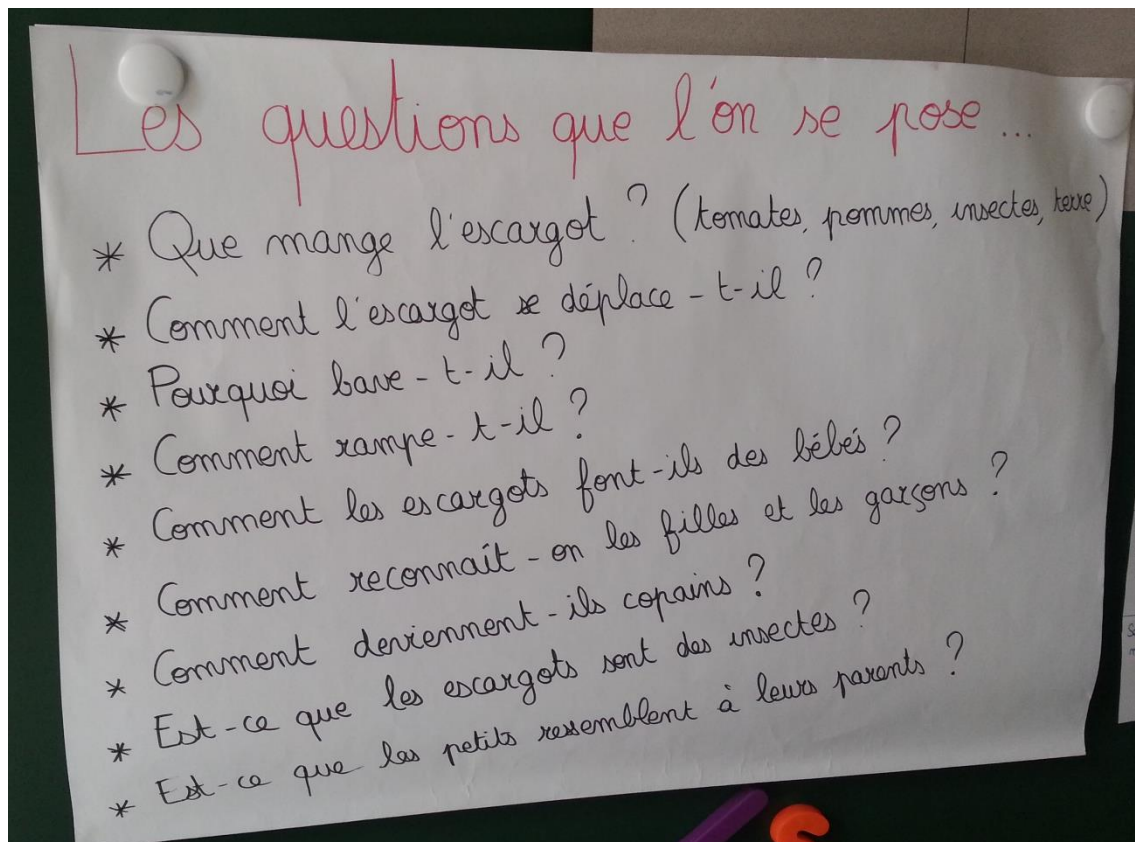 Les questions que l'on se pose...
* Que mange l'escargot ? (tomates, pommes, insectes, terre)
* Comment l'escargot se déplace-t-il ?
* Pourquoi bave-t-il ?
* Comment rampe-t-il ?
* Comment les escargots font-ils des bébés ?
* Comment reconnaît-on les filles et les garçons ?
* Comment deviennent-ils copains ?
* Est-ce que les escargots sont des insectes ?
* Est-ce que les petits ressemblent à leurs parents ?